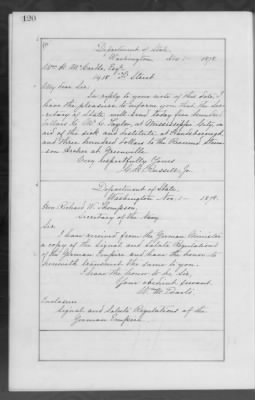 120
Department of State.
Washington Nov. 1 - 1878.
Wm. H. McCardle, Esq.
1418 "D" Street
My dear Sir,
In reply to your note of this date, I
have the pleasure to inform you that the Sec-
retary of State will send today five hundred
dollars to Mr. Taylor, of Mississippi City, in
aid of the sick and destitute at
and three hundred dollars to the Reverend
Archer at Greenville.
Very respectfully Yours
Russell Jr.
Department of State.
Washington Nov. 1 - 1878.
Hon. Richard W. Thompson,
Secretary of the Navy
Sir,
I have received from the German Minister
a copy of the Signal and Salute Regulations
of the German Empire and have the honor to
herewith transmit the same to you.
I have the honor to be, Sir,
Your obedient servant.
Wm. M. Evarts.
Enclosure
Signal and Salute Regulations of the
German Empire.